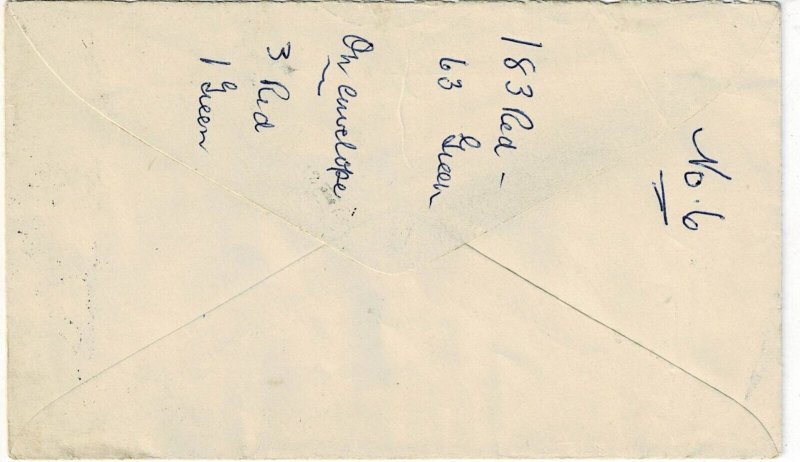 No. 6
183 Red –
63 Green
On envelope
3 Red
1 Green